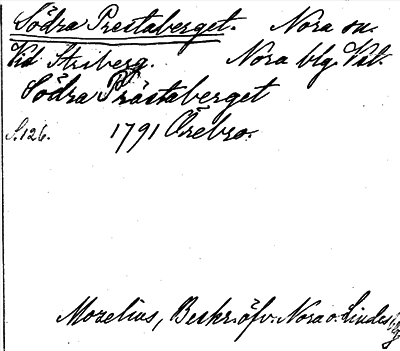 Södra Prestaberget. Nora sn.
Vid Striberg. Nora blg Vstl.
Södra Prästaberget
S. 126. 1791 Örebro.
Mozelius, Beskr. öfv. Nora o. Lindes bg